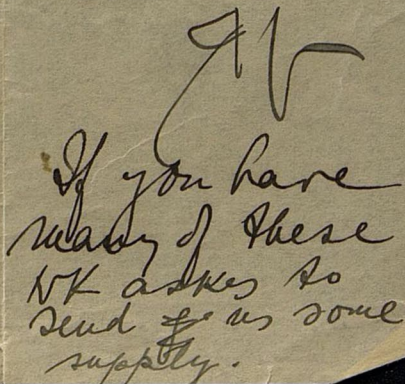 If you have
many of these
NK askes to
send us some
supply.